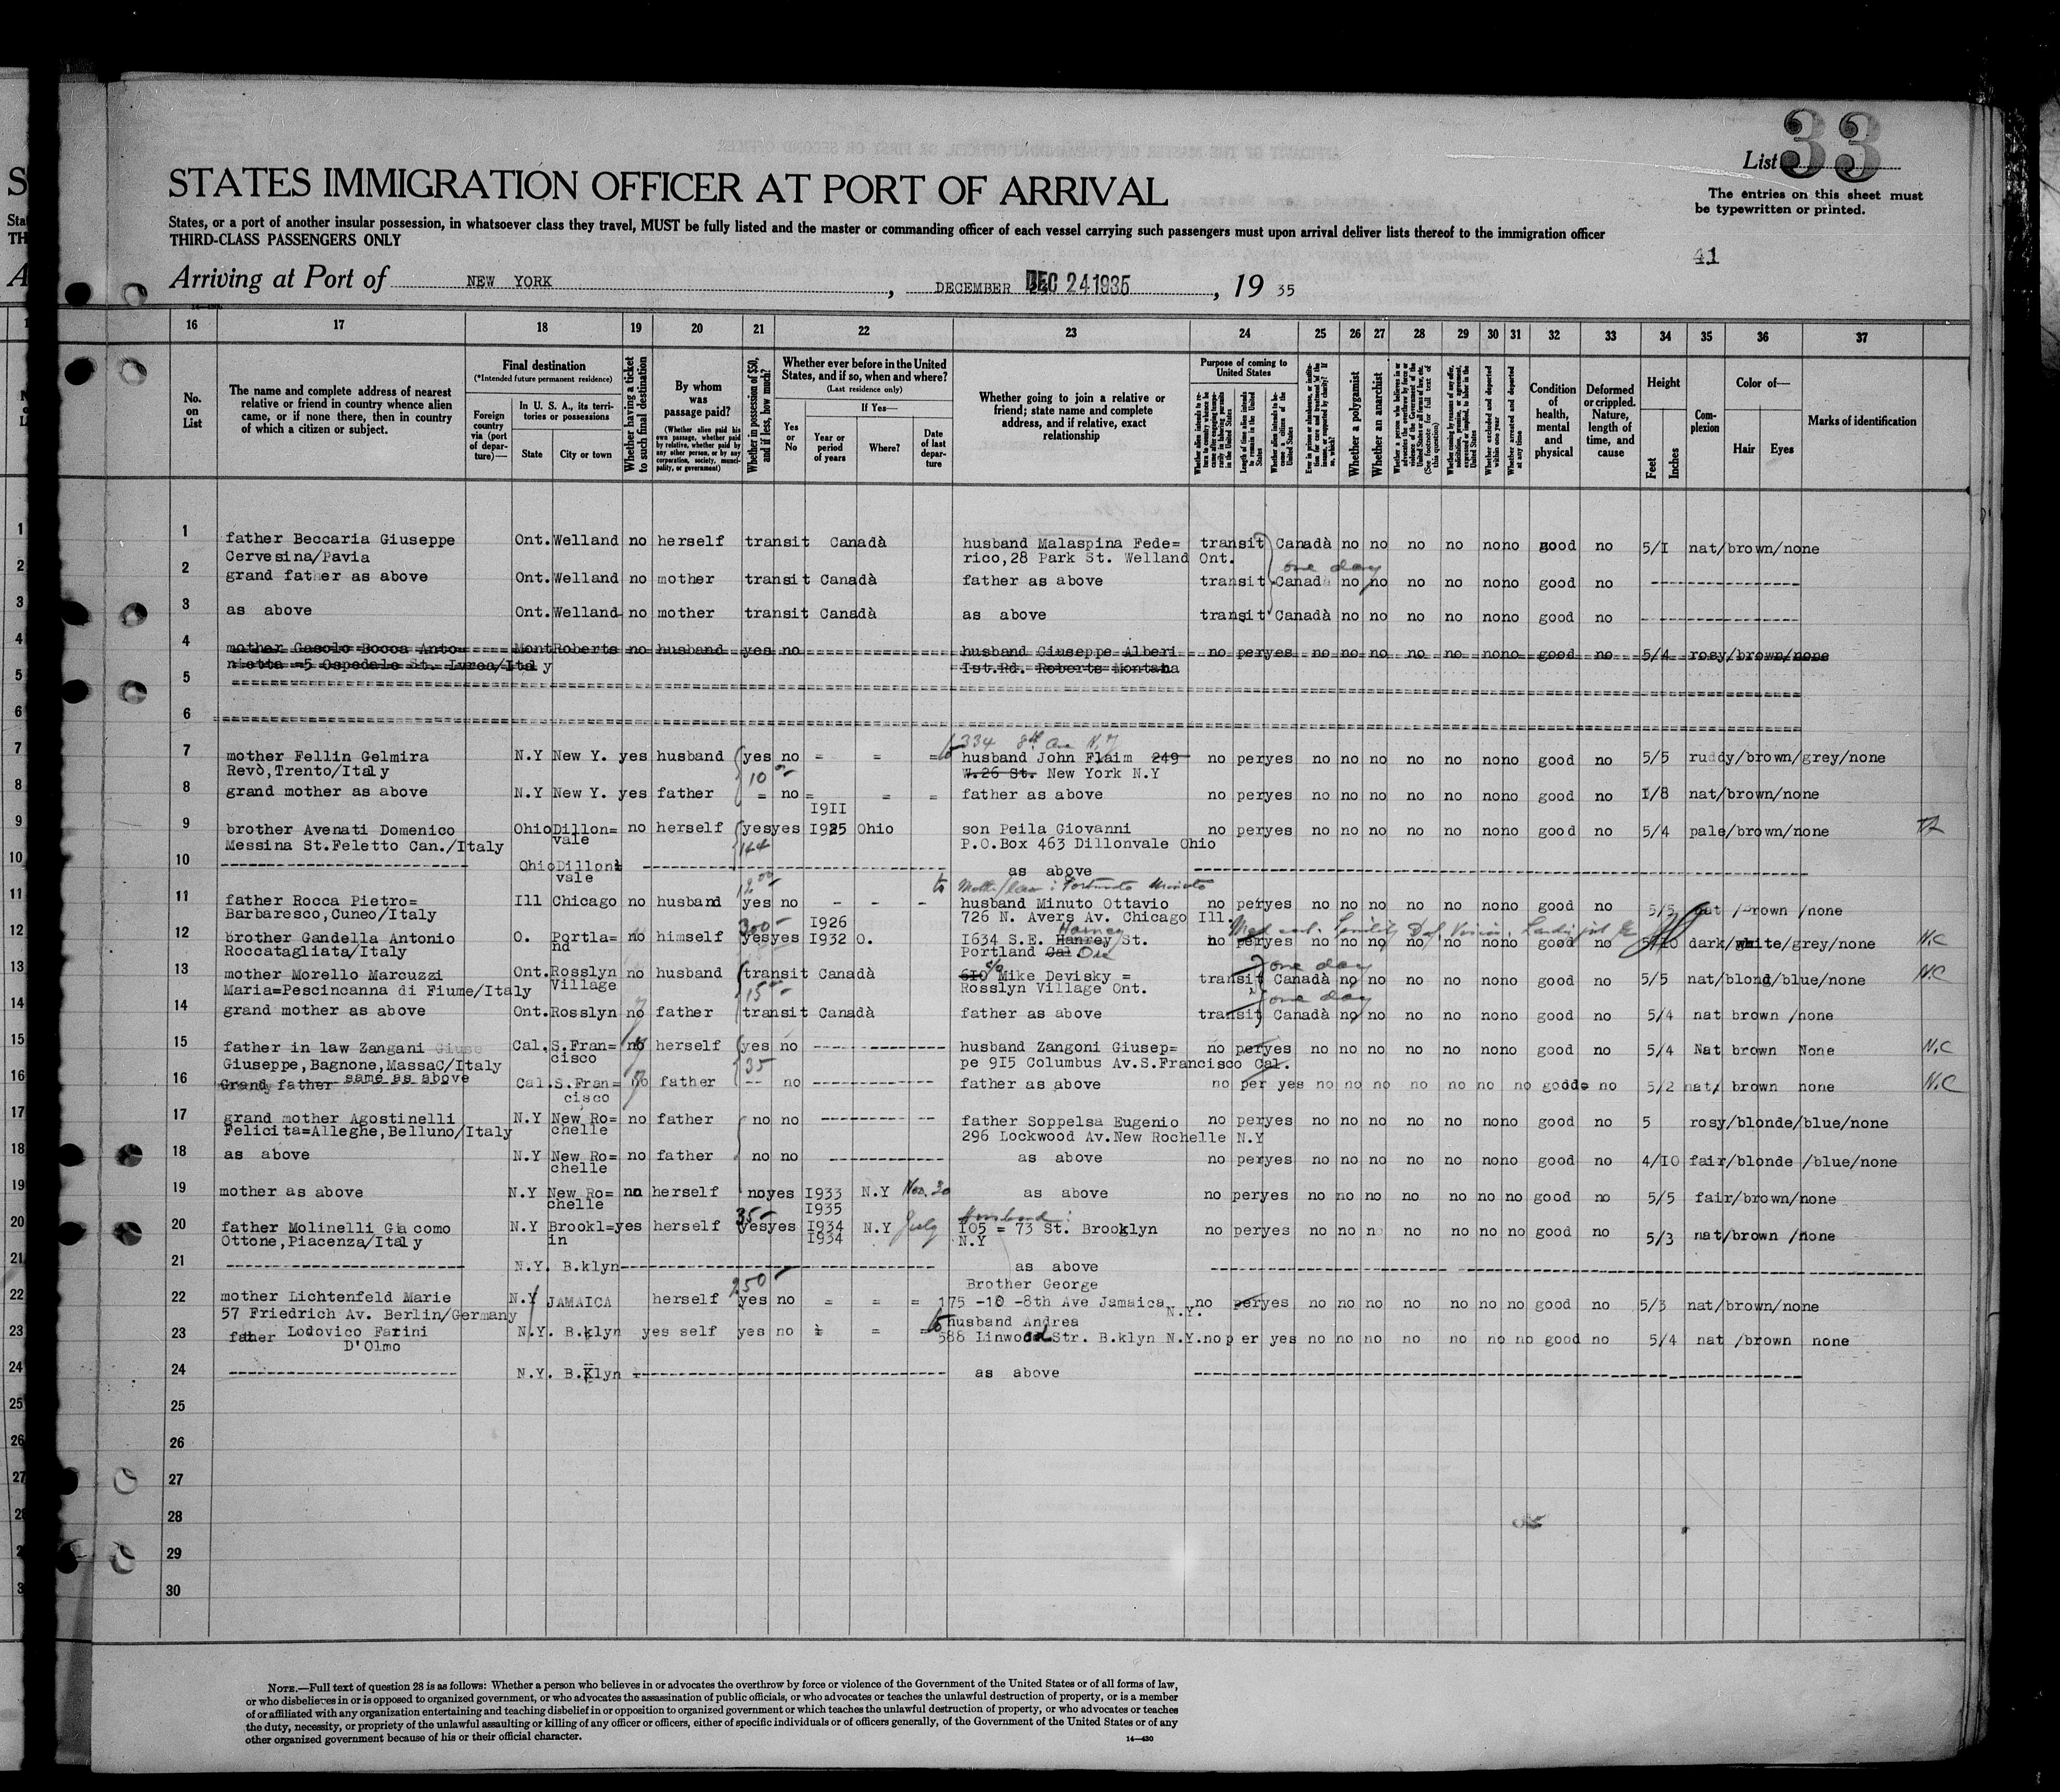 List 33
STATES IMMIGRATION OFFICER AT PORT OF ARRIVAL
The entries on this sheet must
be typewritten or printed.
States, or a port of another insular possession, in whatsoever class they travel, MUST be fully listed and the master or commanding officer of each vessel carrying such passengers must upon arrival deliver lists thereof to the immigration officer
THIRD-CLASS PASSENGERS ONLY
41
Arriving at Port of NEW YORK, DECEMBER DEC 24 1935, 19 35
16 17 18 19 20 21 22 23 24 25 26 27 28 29 30 31 32 33 34 35 36 37
No. on List
The name and complete address of nearest relative or friend in country whence alien came, or if none there, then in country of which a citizen or subject.
Final destination
(*Intended future permanent residence)
Foreign country via (port of departure)—
In U. S. A., its territories or possessions
State City or town
Whether having a ticket to such final destination
By whom was passage paid?
(Whether alien paid his own passage, whether paid by relative, whether paid by any other person, or by any corporation, society, municipality, or government)
Whether in possession of $50, and if less, how much?
Whether ever before in the United States, and if so, when and where?
(Last residence only)
Yes or No
If Yes—
Year or period of years
Where?
Date of last departure
Whether going to join a relative or friend; state name and complete address, and if relative, exact relationship
Purpose of coming to United States
Length of time alien intends to remain in the United States
Whether alien intends to become a citizen of the United States
Whether a polygamist
Whether an anarchist
Whether excluded and deported within one year
Whether arrested and deported at any time
Condition of health, mental and physical
Deformed or crippled. Nature, length of time, and cause
Height
Feet Inches
Complexion
Color of—
Hair Eyes
Marks of identification
1 father Beccaria Giuseppe Ont. Welland no herself transit Canadà husband Malaspina Fede= transit Canadà no no no no no no good no 5/I nat/brown/none
Cervesina/Pavia rico,28 Park St. Welland Ont.
one day
2 grand father as above Ont. Welland no mother transit Canadà father as above transit Canadà no no no no no no good no ----------
3 as above Ont. Welland no mother transit Canadà as above transit Canadà no no no no no no good no ----------
4 mother Gasolo Bocca Anto Mont Roberts no husband yes no husband Giuseppe Alberi no per yes no no no no no no no good no 5/4 rosy/brown/none
nietta =5 Ospedale St. Ivrea/Italy Ist.Rd. Roberts Montana
5
6
334 8th Ave N.Y
7 mother Fellin Gelmira N.Y New Y. yes husband yes no = = = husband John Flaim 249 no per yes no no no no no no no good no 5/5 ruddy/brown/grey/none
Revò,Trento/Italy 10 W.26 St. New York N.Y
8 grand mother as above N.Y New Y. yes father = no = = = father as above no per yes no no no no no no no good no I/8 nat/brown/none
I9II
9 brother Avenati Domenico Ohio Dillon= no herself yes yes I925 Ohio son Peila Giovanni no per yes no no no no no no no good no 5/4 pale/brown/none
Messina St.Feletto Can./Italy vale 144 P.O.Box 463 Dillonvale Ohio
10 ---------- Ohio Dillon= ---------- as above ----------
vale
12
11 father Rocca Pietro= Ill Chicago no husband yes no - - - husband Minuto Ottavio no per yes no no no no no no no good no 5/5 nat /brown /none
Barbaresco,Cuneo/Italy 726 N. Avers Av. Chicago Ill.
300 I926 Harney
12 brother Gandella Antonio O. Portla= no himself yes yes I932 O. I634 S.E. Hanrey St. no per yes no no no no no no no good no 5/10 dark/white/grey/none N.C
Roccatagliata/Italy nd Portland Cal Ore
one day
13 mother Morello Marcuzzi Ont. Rosslyn no husband transit Canadà 610 c/o Mike Devisky = transit Canadà no no no no no no good no 5/5 nat/blond/blue/none N.C
Maria=Pescincanna di Fiume/Italy Village 15 Rosslyn Village Ont.
one day
14 grand mother as above Ont. Rosslyn no father transit Canadà father as above transit Canadà no no no no no no good no 5/4 nat brown /none
15 father in law Zangani Giuse Cal. S.Fran= no herself yes no ---------- husband Zangoni Giusep= no per yes no no no no no no no good no 5/4 Nat brown None N.C
Giuseppe,Bagnone,Massac/Italy cisco 35 pe 9I5 Columbus Av.S.Francisco Cal.
16 Grand father same as above Cal. S.Fran= no father -- no ---------- father as above no per yes no no no no no no no good no 5/2 nat/ brown none N.C
cisco
17 grand mother Agostinelli N.Y New Ro= no father no no ---------- father Soppelsa Eugenio no per yes no no no no no no no good no 5 rosy/blonde/blue/none
Felicita=Alleghe,Belluno/Italy chelle 296 Lockwood Av.New Rochelle N.Y
18 as above N.Y New Ro= no father no no ---------- as above no per yes no no no no no no no good no 4/I0 fair/blonde /blue/none
chelle
19 mother as above N.Y New Ro= no herself no yes I933 N.Y Nov. 30 as above no per yes no no no no no no no good no 5/5 fair/brown/none
chelle I935
35 Husband :
20 father Molinelli Giacomo N.Y Brookl= yes herself yes yes I934 N.Y July I05 = 73 St. Brooklyn no per yes no no no no no no no good no 5/3 nat/brown /none
Ottone,Piacenza/Italy in I934 N.Y
21 ---------- N.Y. B.klyn ---------- as above ----------
250 Brother George
22 mother Lichtenfeld Marie N.Y JAMAICA herself yes no = = = 175 -10 -8th Ave Jamaica N.Y. no per yes no no no no no no no good no 5/3 nat/brown/none
57 Friedrich Av. Berlin/Germany husband Andrea
23 father Lodovico Farini N.Y. B.klyn yes self yes no = = 588 Linwood Str. B.klyn N.Y. no per yes no no no no no no no good no 5/4 nat /brown none
D'Olmo
24 ---------- N.Y. B.Klyn ---------- as above ----------
25
26
27
28
29
30
NOTE.—Full text of question 28 is as follows: Whether a person who believes in or advocates the overthrow by force or violence of the Government of the United States or of all forms of law,
or who disbelieves in or is opposed to organized government, or who advocates the assassination of public officials, or who advocates or teaches the unlawful destruction of property, or is a member
of or affiliated with any organization entertaining and teaching disbelief in or opposition to organized government or which teaches the unlawful destruction of property, or who advocates or teaches
the duty, necessity, or propriety of the unlawful assaulting or killing of any officer or officers, either of specific individuals or of officers generally, of the Government of the United States or of any
other organized government because of his or their official character.
14—430